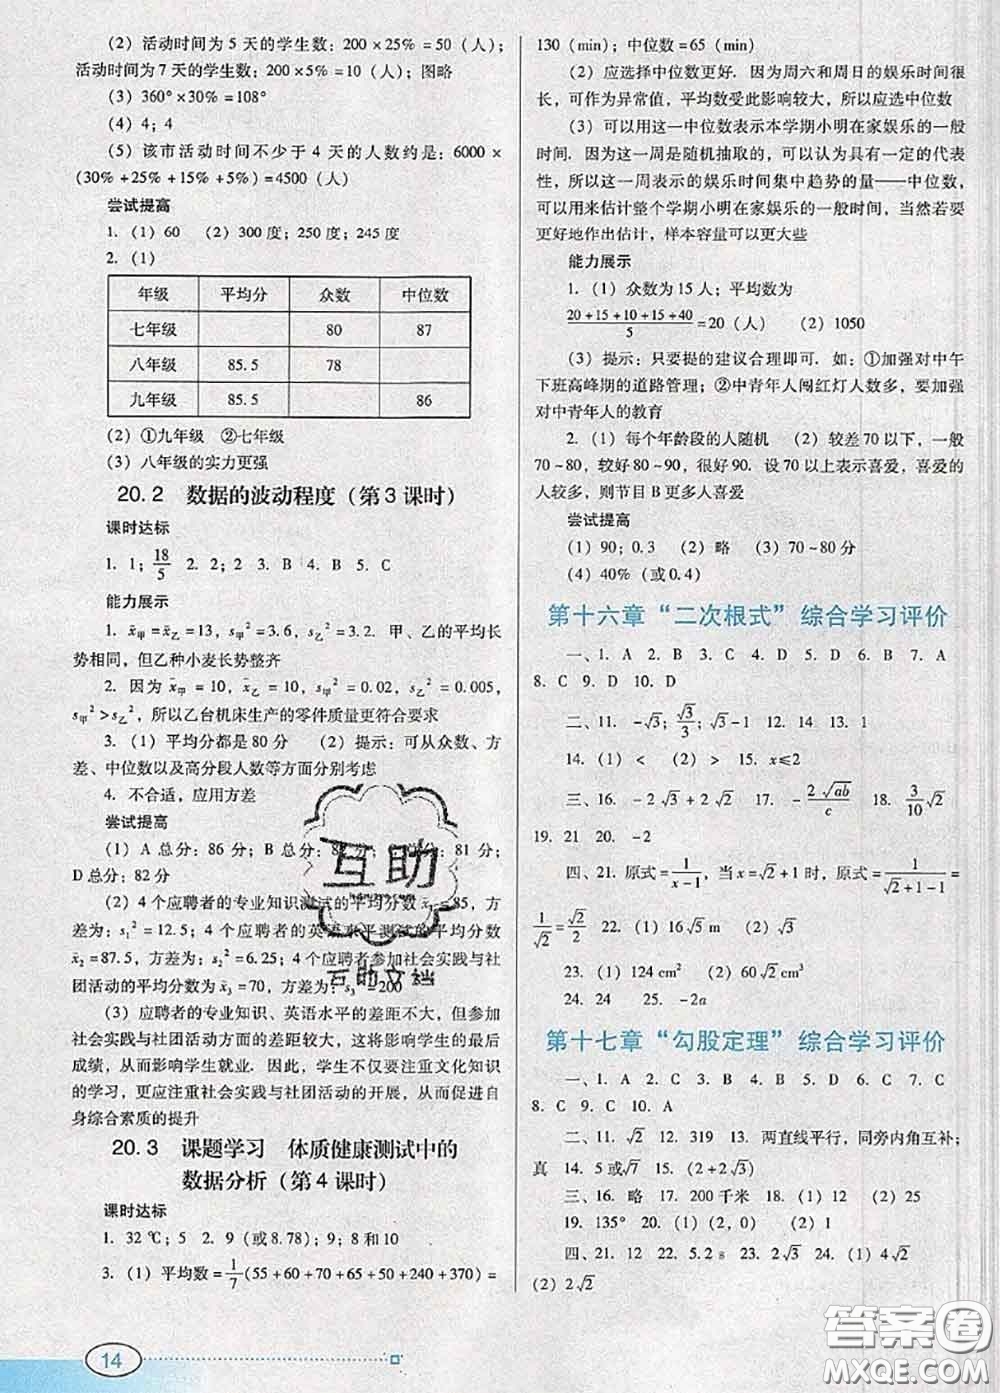 (2) 活动时间为 5 天的学生数：200×25%=50（人）；
活动时间为 7 天的学生数：200×5%=10（人）；图略
(3) 360°×30%=108°
(4) 4；4
(5) 该市活动时间不少于 4 天的人数约是：6000×
(30%+25%+15%+5%)=4500（人）
尝试提高
1. (1) 60 (2) 300 度；250 度；245 度
2. (1)
年级 平均分 众数 中位数
七年级 80 87
八年级 85.5 78
九年级 85.5 86
(2) ①九年级 ②七年级
(3) 八年级的实力更强
20.2 数据的波动程度（第 3 课时）
课时达标
1. 1；18/5 2. 2；2 3. B 4. B 5. C
能力展示
1. x̄甲=x̄乙=13，s甲²=3.6，s乙²=2. 甲、乙的平均长
势相同，但乙种小麦长势整齐
2. 因为 x̄甲=10，x̄乙=10，s甲²=0.02，s乙²=0.005，
s甲²>s乙²，所以乙台机床生产的零件质量更符合要求
3. (1) 平均分都是 80 分 (2) 提示：可从众数、方
差、中位数以及高分段人数等方面分别考虑
4. 不合适，应用方差
尝试提高
(1) A 总分：86 分；B 总分： 81 分；
D 总分：82 分
(2) 4 个应聘者的专业知识测试的平均分数 x̄₁=85，方
差为：s₁²=12.5；4 个应聘者的英语水平测试的平均分数
x̄₂=87.5，方差为：s₂²=6.25；4 个应聘者参加社会实践与社
团活动的平均分数为 x̄₃=70，方差为：s₃²=200
(3) 应聘者的专业知识、英语水平的差距不大，但参加
社会实践与社团活动方面的差距较大，这将影响学生的最后
成绩，从而影响学生就业. 因此，学生不仅要注重文化知识
的学习，更应注重社会实践与社团活动的开展，从而促进自
身综合素质的提升
20.3 课题学习 体质健康测试中的
数据分析（第 4 课时）
课时达标
1. 32 ℃；5 2. 9（或8.78）；9；8 和 10
3. (1) 平均数=1/7(55+60+70+65+50+240+370)=
14
130（min）；中位数=65（min）
(2) 应选择中位数更好. 因为周六和周日的娱乐时间很
长，可作为异常值，平均数受此影响较大，所以应选中位数
(3) 可以用这一中位数表示本学期小明在家娱乐的一般
时间. 因为这一周是随机抽取的，可以认为具有一定的代表
性，所以这一周表示的娱乐时间集中趋势的量——中位数，
可以用来估计整个学期小明在家娱乐的一般时间，当然若要
更好地作出估计，样本容量可以更大些
能力展示
1. (1) 众数为 15 人；平均数为
(20+15+10+15+40)/5=20（人） (2) 1050
(3) 提示：只要提的建议合理即可. 如：①加强对中午
下班高峰期的道路管理；②中青年人闯红灯人数多，要加强
对中青年人的教育
2. (1) 每个年龄段的人随机 (2) 较差 70 以下，一般
70~80，较好 80~90，很好 90. 设 70 以上表示喜爱，喜爱的
人较多，则节目 B 更多人喜爱
尝试提高
(1) 90；0.3 (2) 略 (3) 70~80 分
(4) 40%（或 0.4）
第十六章“二次根式”综合学习评价
一、1. A 2. B 3. C 4. D 5. D 6. B 7. A
8. C 9. D 10. D
二、11. -√3；√3/3；√3-1 12. 14 13. 1
14. (1) < (2) > 15. x≤2
三、16. -2√3+2√2 17. -2√ab/c 18. 3/10√2
19. 21 20. -2
四、21. 原式=1/(x-1)，当 x=√2+1 时，原式=1/(√2+1-1)=
1/√2=√2/2 22. (1) 16√5 m (2) √3
23. (1) 124 cm² (2) 60√2 cm³
24. 24 25. -2a
第十七章“勾股定理”综合学习评价
一、1. A 2. C 3. B 4. C 5. B 6. C 7. C
8. C 9. C 10. A
二、11. √2 12. 319 13. 两直线平行，同旁内角互补；
真 14. 5 或 √7 15. (2+2√3)
三、16. 略 17. 200 千米 18. (1) √5 (2) 25
19. 135° 20. (1) (2，0) (2) √5
四、21. 12 22. 5.2 s 23. 2√3 24. (1) 4√2
(2) 2√2
互助
互助文档
答案圈
MXQE.COM